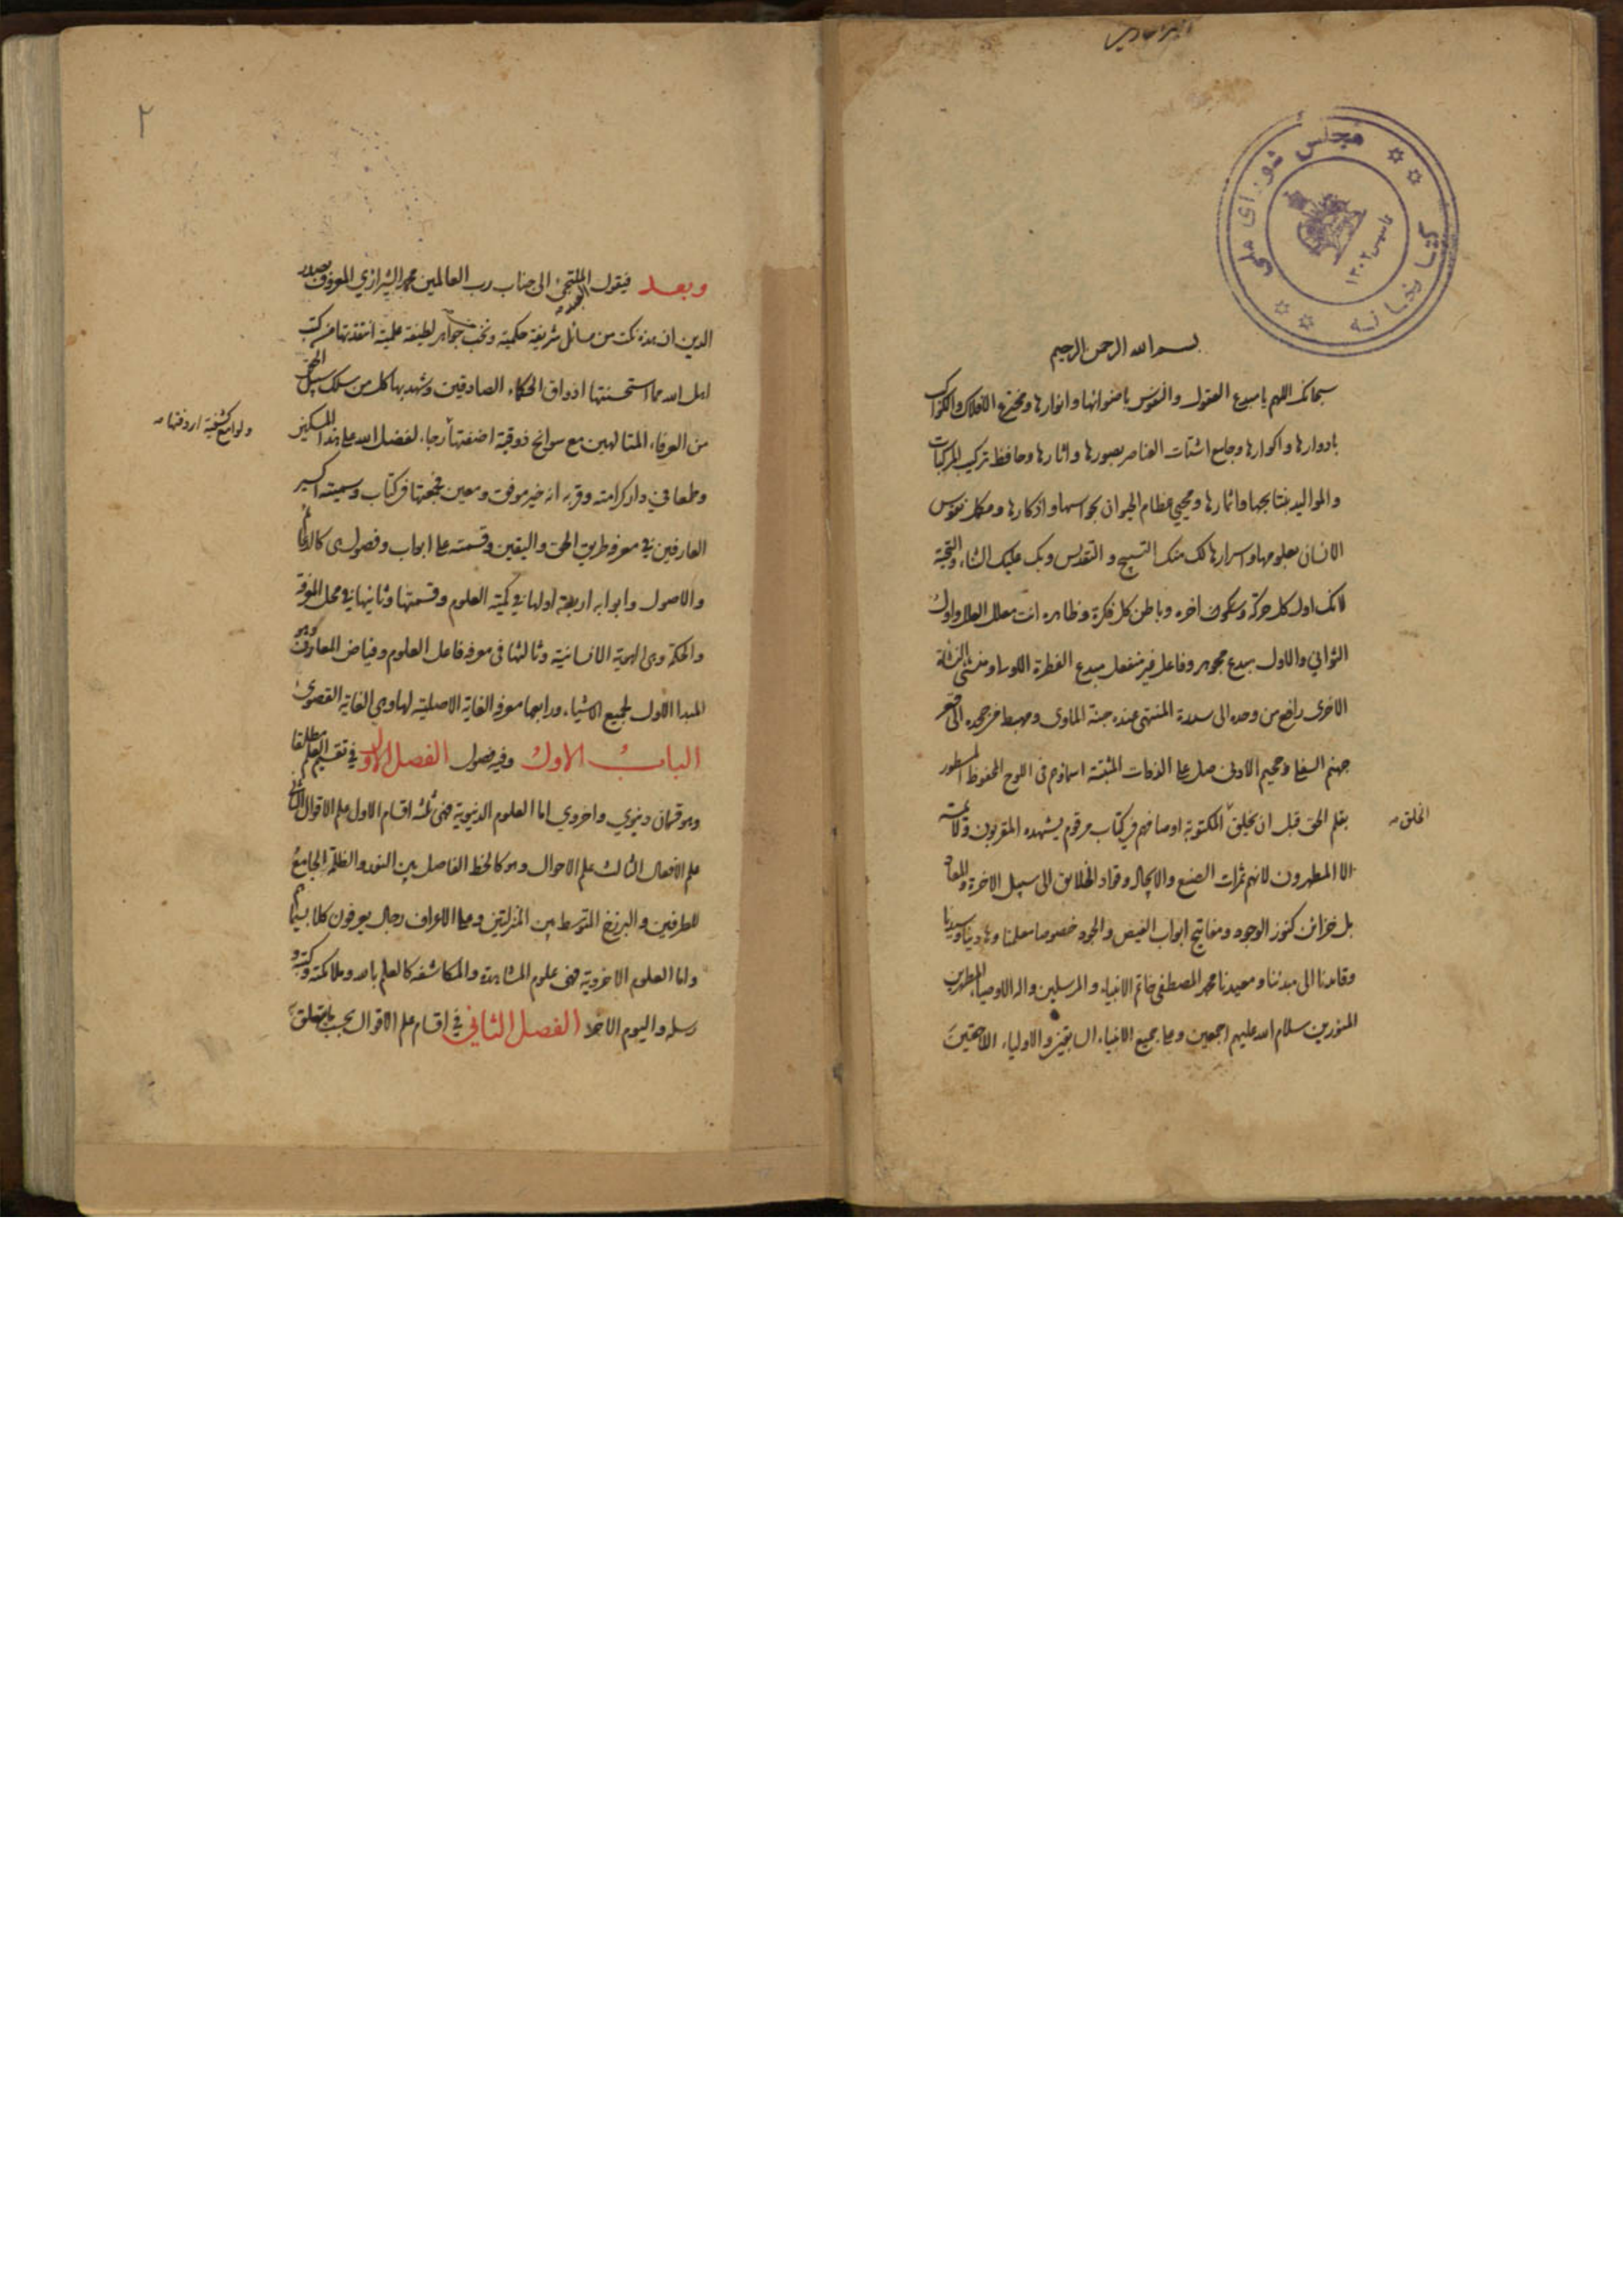 مجلس شورای ملی
کتابخانه
تاسیس ۱۳۰۲
بسم الله الرحمن الرحیم
سبحانک اللهم یا مبدع العقول والنفوس باضوائها وانوارها ومخترع الافلاک والکواکب
بادوارها واکوارها وجامع اشتات العناصر بصورها واثارها وحافظ ترکیب المرکبات
والموالید بنتایجها واثمارها ومحیی عظام الحیوان بحواسها واذکارها ومکمل نفوس
الانسان بعلومها واسرارها لک منک التسبیح والتقدیس وبک علیک الثناء والتحیة
لانک اول کل حرکة وسکون اخره وباطن کل فکرة وظاهره انت معلل العلل واول
الثوانی والاول مبدع مجوهر وفاعل غیر منفعل مبدع الفطرة الاولی ومنشی النشاة
الاخری رافع من وحده الی سدرة المنتهی عنده جنة الماوی ومهبط من جحده الی قعر
جهنم السفلی وجحیم الادنی صل علی الذوات المثبتة اسماؤهم فی اللوح المحفوظ المسطور
بقلم الحق قبل ان یخلق المکتوبة اوصافهم فی کتاب مرقوم یشهده المقربون ولا یمسه
الخلق
الا المطهرون لانهم ثمرات الصنع والایجاد وقواد الخلایق الی سبیل الاخرة والمعاد
بل خزائن کنوز الوجود ومفاتیح ابواب الفیض والجود خصوصا معلمنا وهادینا وسیدنا
وقائدنا الی مبدئنا ومعیدنا محمد المصطفی خاتم الانبیاء والمرسلین واله الاوصیاء المطهرین
المنورین سلام الله علیهم اجمعین وعلی جمیع الانبیاء السابقین والاولیاء اللاحقین
۲
وبعد فیقول الملتجئ الی جناب رب العالمین محمد الشیرازی المعروف بصدر
الدین ان هذه نکت من مسائل شریفة حکمیة ونخب جواهر لطیفة علمیة انتقدتها من کتب
اهل الله مما استحسنتها اذواق الحکماء الصادقین وشهد بها کل من سلک سبیل الحق
من العرفاء المتالهین مع سوانح ذوقیة اضفتها رجاء لفضل الله علی هذا المسکین
ولوامع کشفیة اردفتها
وطمعا فی دار کرامته وقربه انه خیر موفق ومعین فجمعتها فی کتاب وسمیته اکسیر
العارفین فی معرفة طریق الحق والیقین وقسمته علی ابواب وفصول هی کالدعائم
والاصول وابوابه اربعة اولها فی کمیة العلوم وقسمتها وثانیها فی محل المعرفة
والحکمة وهی الهویة الانسانیة وثالثها فی معرفة فاعل العلوم وفیاض المعارف وهو
المبدا الاول لجمیع الاشیاء ورابعها معرفة الغایة الاصلیة لها وهی الغایة القصوی
الباب الاول وفیه فصول الفصل الاول فی تقسیم العلم مطلقا
وهو قسمان دنیوی واخروی اما العلوم الدنیویة فهی ثلثة اقسام الاول علم الاقوال الثانی
علم الافعال الثالث علم الاحوال وهو کالخط الفاصل بین النور والظلمة الجامع
للطرفین والبرزخ المتوسط بین المنزلتین وعلی الاعراف رجال یعرفون کلا بسیماهم
واما العلوم الاخرویة فهی علوم المشاهدة والمکاشفة کالعلم بالله وملائکته وکتبه و
رسله والیوم الاخر الفصل الثانی فی اقسام علم الاقوال بحسب ما یتعلق